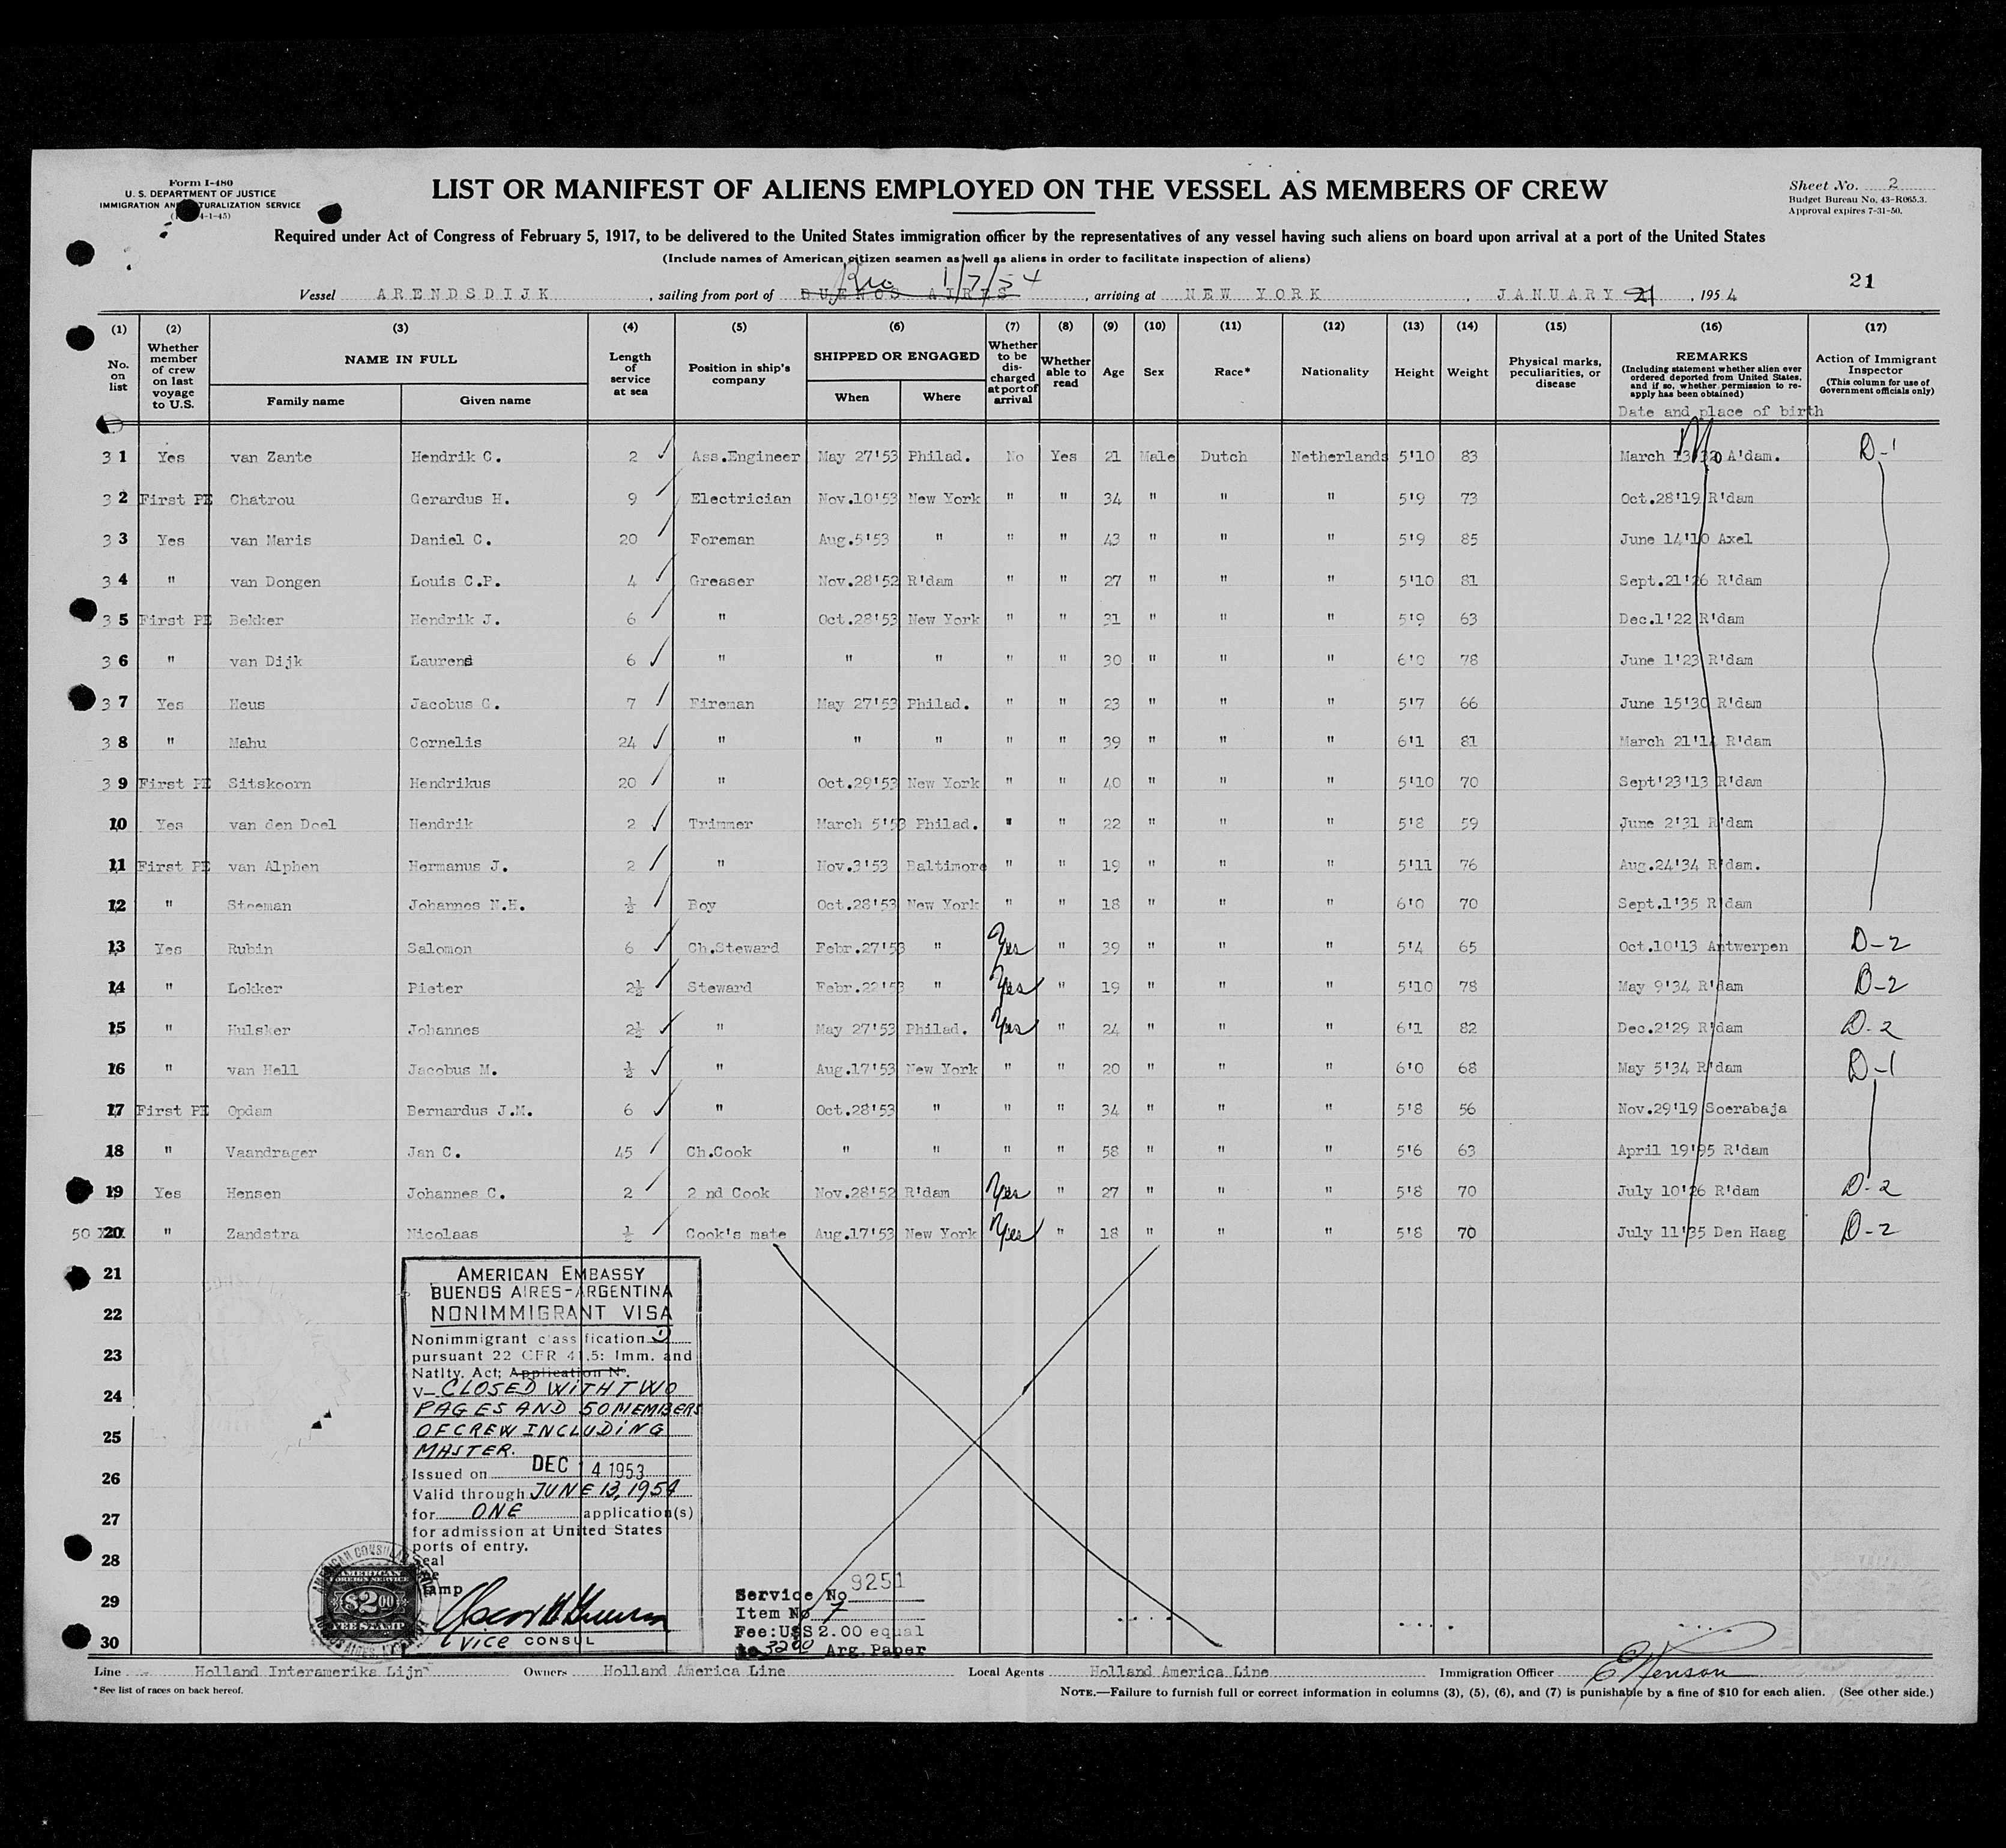 Form I-480
U. S. DEPARTMENT OF JUSTICE
IMMIGRATION AND NATURALIZATION SERVICE
4-1-45)
LIST OR MANIFEST OF ALIENS EMPLOYED ON THE VESSEL AS MEMBERS OF CREW
Sheet No. 2
Budget Bureau No. 43-R065.3.
Approval expires 7-31-50.
Required under Act of Congress of February 5, 1917, to be delivered to the United States immigration officer by the representatives of any vessel having such aliens on board upon arrival at a port of the United States
(Include names of American citizen seamen as well as aliens in order to facilitate inspection of aliens)
21
Rio 1/7/54
Vessel ARENDSDIJK, sailing from port of BUENOS AIRES, arriving at NEW YORK, JANUARY 21, 1954
(1) (2) (3) (4) (5) (6) (7) (8) (9) (10) (11) (12) (13) (14) (15) (16) (17)
No. on list
Whether member of crew on last voyage to U.S.
NAME IN FULL
Family name Given name
Length of service at sea
Position in ship's company
SHIPPED OR ENGAGED
When Where
Whether to be discharged at port of arrival
Whether able to read
Age
Sex
Race*
Nationality
Height
Weight
Physical marks, peculiarities, or disease
REMARKS
(Including statement whether alien ever ordered deported from United States, and if so, whether permission to reapply has been obtained)
Date and place of birth
Action of Immigrant Inspector
(This column for use of Government officials only)
3 1 Yes van Zante Hendrik C. 2 Ass.Engineer May 27'53 Philad. No Yes 21 Male Dutch Netherlands 5'10 83 March 13'32 A'dam. D-1
3 2 First PE Chatrou Gerardus H. 9 Electrician Nov.10'53 New York " " 34 " " " 5'9 73 Oct.28'19 R'dam
3 3 Yes van Maris Daniel C. 20 Foreman Aug.5'53 " " " 43 " " " 5'9 85 June 14'10 Axel
3 4 " van Dongen Louis C.P. 4 Greaser Nov.28'52 R'dam " " 27 " " " 5'10 81 Sept.21'26 R'dam
3 5 First PE Bekker Hendrik J. 6 " Oct.28'53 New York " " 31 " " " 5'9 63 Dec.1'22 R'dam
3 6 " van Dijk Laurens 6 " " " " " 30 " " " 6'0 78 June 1'23 R'dam
3 7 Yes Heus Jacobus C. 7 Fireman May 27'53 Philad. " " 23 " " " 5'7 66 June 15'30 R'dam
3 8 " Mahu Cornelis 24 " " " " " 39 " " " 6'1 81 March 21'14 R'dam
3 9 First PE Sitskoorn Hendrikus 20 " Oct.29'53 New York " " 40 " " " 5'10 70 Sept'23'13 R'dam
10 Yes van den Doel Hendrik 2 Trimmer March 5'53 Philad. " " 22 " " " 5'8 59 June 2'31 R'dam
11 First PE van Alphen Hermanus J. 2 " Nov.3'53 Baltimore " " 19 " " " 5'11 76 Aug.24'34 R'dam.
12 " Steeman Johannes N.H. ½ Boy Oct.28'53 New York " " 18 " " " 6'0 70 Sept.1'35 R'dam
13 Yes Rubin Salomon 6 Ch.Steward Febr.27'53 " Yes " 39 " " " 5'4 65 Oct.10'13 Antwerpen D-2
14 " Lokker Pieter 2½ Steward Febr.22'53 " Yes " 19 " " " 5'10 78 May 9'34 R'dam D-2
15 " Hulsker Johannes 2½ " May 27'53 Philad. Yes " 24 " " " 6'1 82 Dec.2'29 R'dam D-2
16 " van Hell Jacobus M. ½ " Aug.17'53 New York " " 20 " " " 6'0 68 May 5'34 R'dam D-1
17 First PE Opdam Bernardus J.M. 6 " Oct.28'53 " " " 34 " " " 5'8 56 Nov.29'19 Soerabaja
18 " Vaandrager Jan C. 45 Ch.Cook " " " " 58 " " " 5'6 63 April 19'95 R'dam
19 Yes Hensen Johannes C. 2 2 nd Cook Nov.28'52 R'dam Yes " 27 " " " 5'8 70 July 10'26 R'dam D-2
50 20 " Zandstra Nicolaas ½ Cook's mate Aug.17'53 New York Yes " 18 " " " 5'8 70 July 11'35 Den Haag D-2
21
22
23
24
25
26
27
28
29
30
AMERICAN EMBASSY
BUENOS AIRES-ARGENTINA
NONIMMIGRANT VISA
Nonimmigrant classification D
pursuant 22 CFR 41.5: Imm. and
Natlty. Act; Application Nº.
V- CLOSED WITH TWO
PAGES AND 50 MEMBERS
OF CREW INCLUDING
MASTER.
Issued on DEC 14 1953
Valid through JUNE 13, 1954
for ONE application(s)
for admission at United States
ports of entry.
Seal
VICE CONSUL
AMERICAN
FOREIGN SERVICE
$2.00
FEE STAMP
Service No 9251
Item No 7
Fee: U$S 2.00 equal
to 32.00 Arg. Paper
Line Holland Interamerika Lijn Owners Holland America Line Local Agents Holland America Line Immigration Officer
*See list of races on back hereof.
NOTE.—Failure to furnish full or correct information in columns (3), (5), (6), and (7) is punishable by a fine of $10 for each alien. (See other side.)